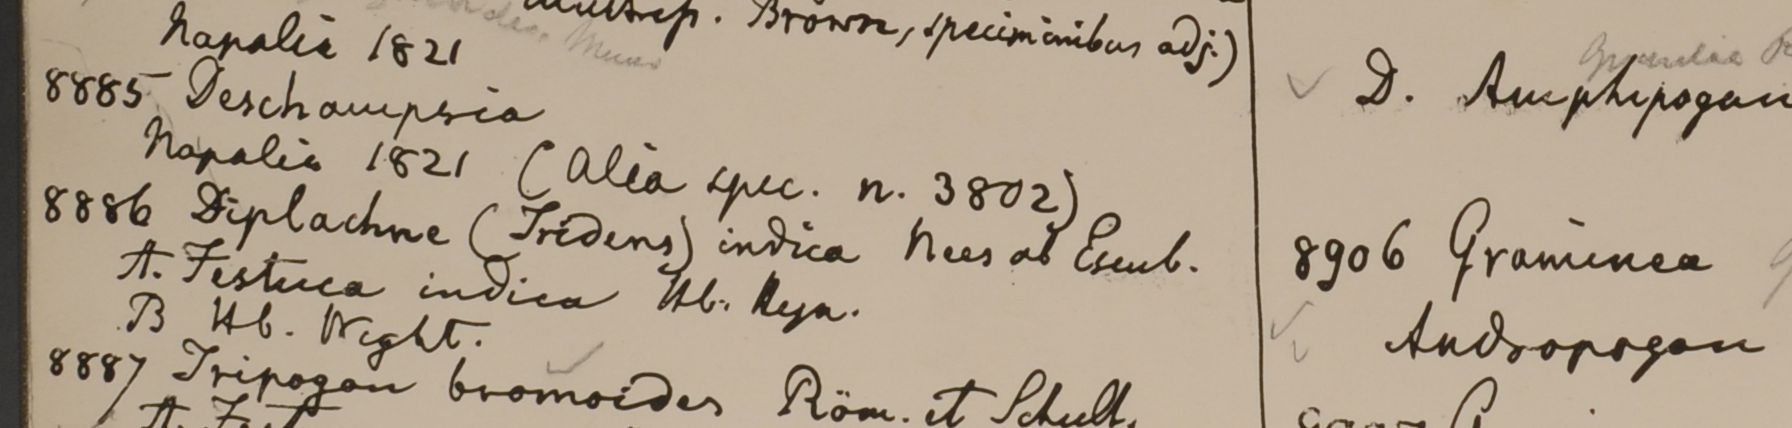 Brown, speciminibus adj.)
Napalia 1821
8885 Deschampsia
Napalia 1821 (Alia spec. n. 3802)
8886 Diplachne (Tridens) indica Nees ab Esenb.
A. Festuca indica Hb. Heyn.
B Hb. Wight.
8887 Tripogon bromoides Röm. et Schult.
A. Fest
D. Amphipogon
8906 Graminea
Andropogon